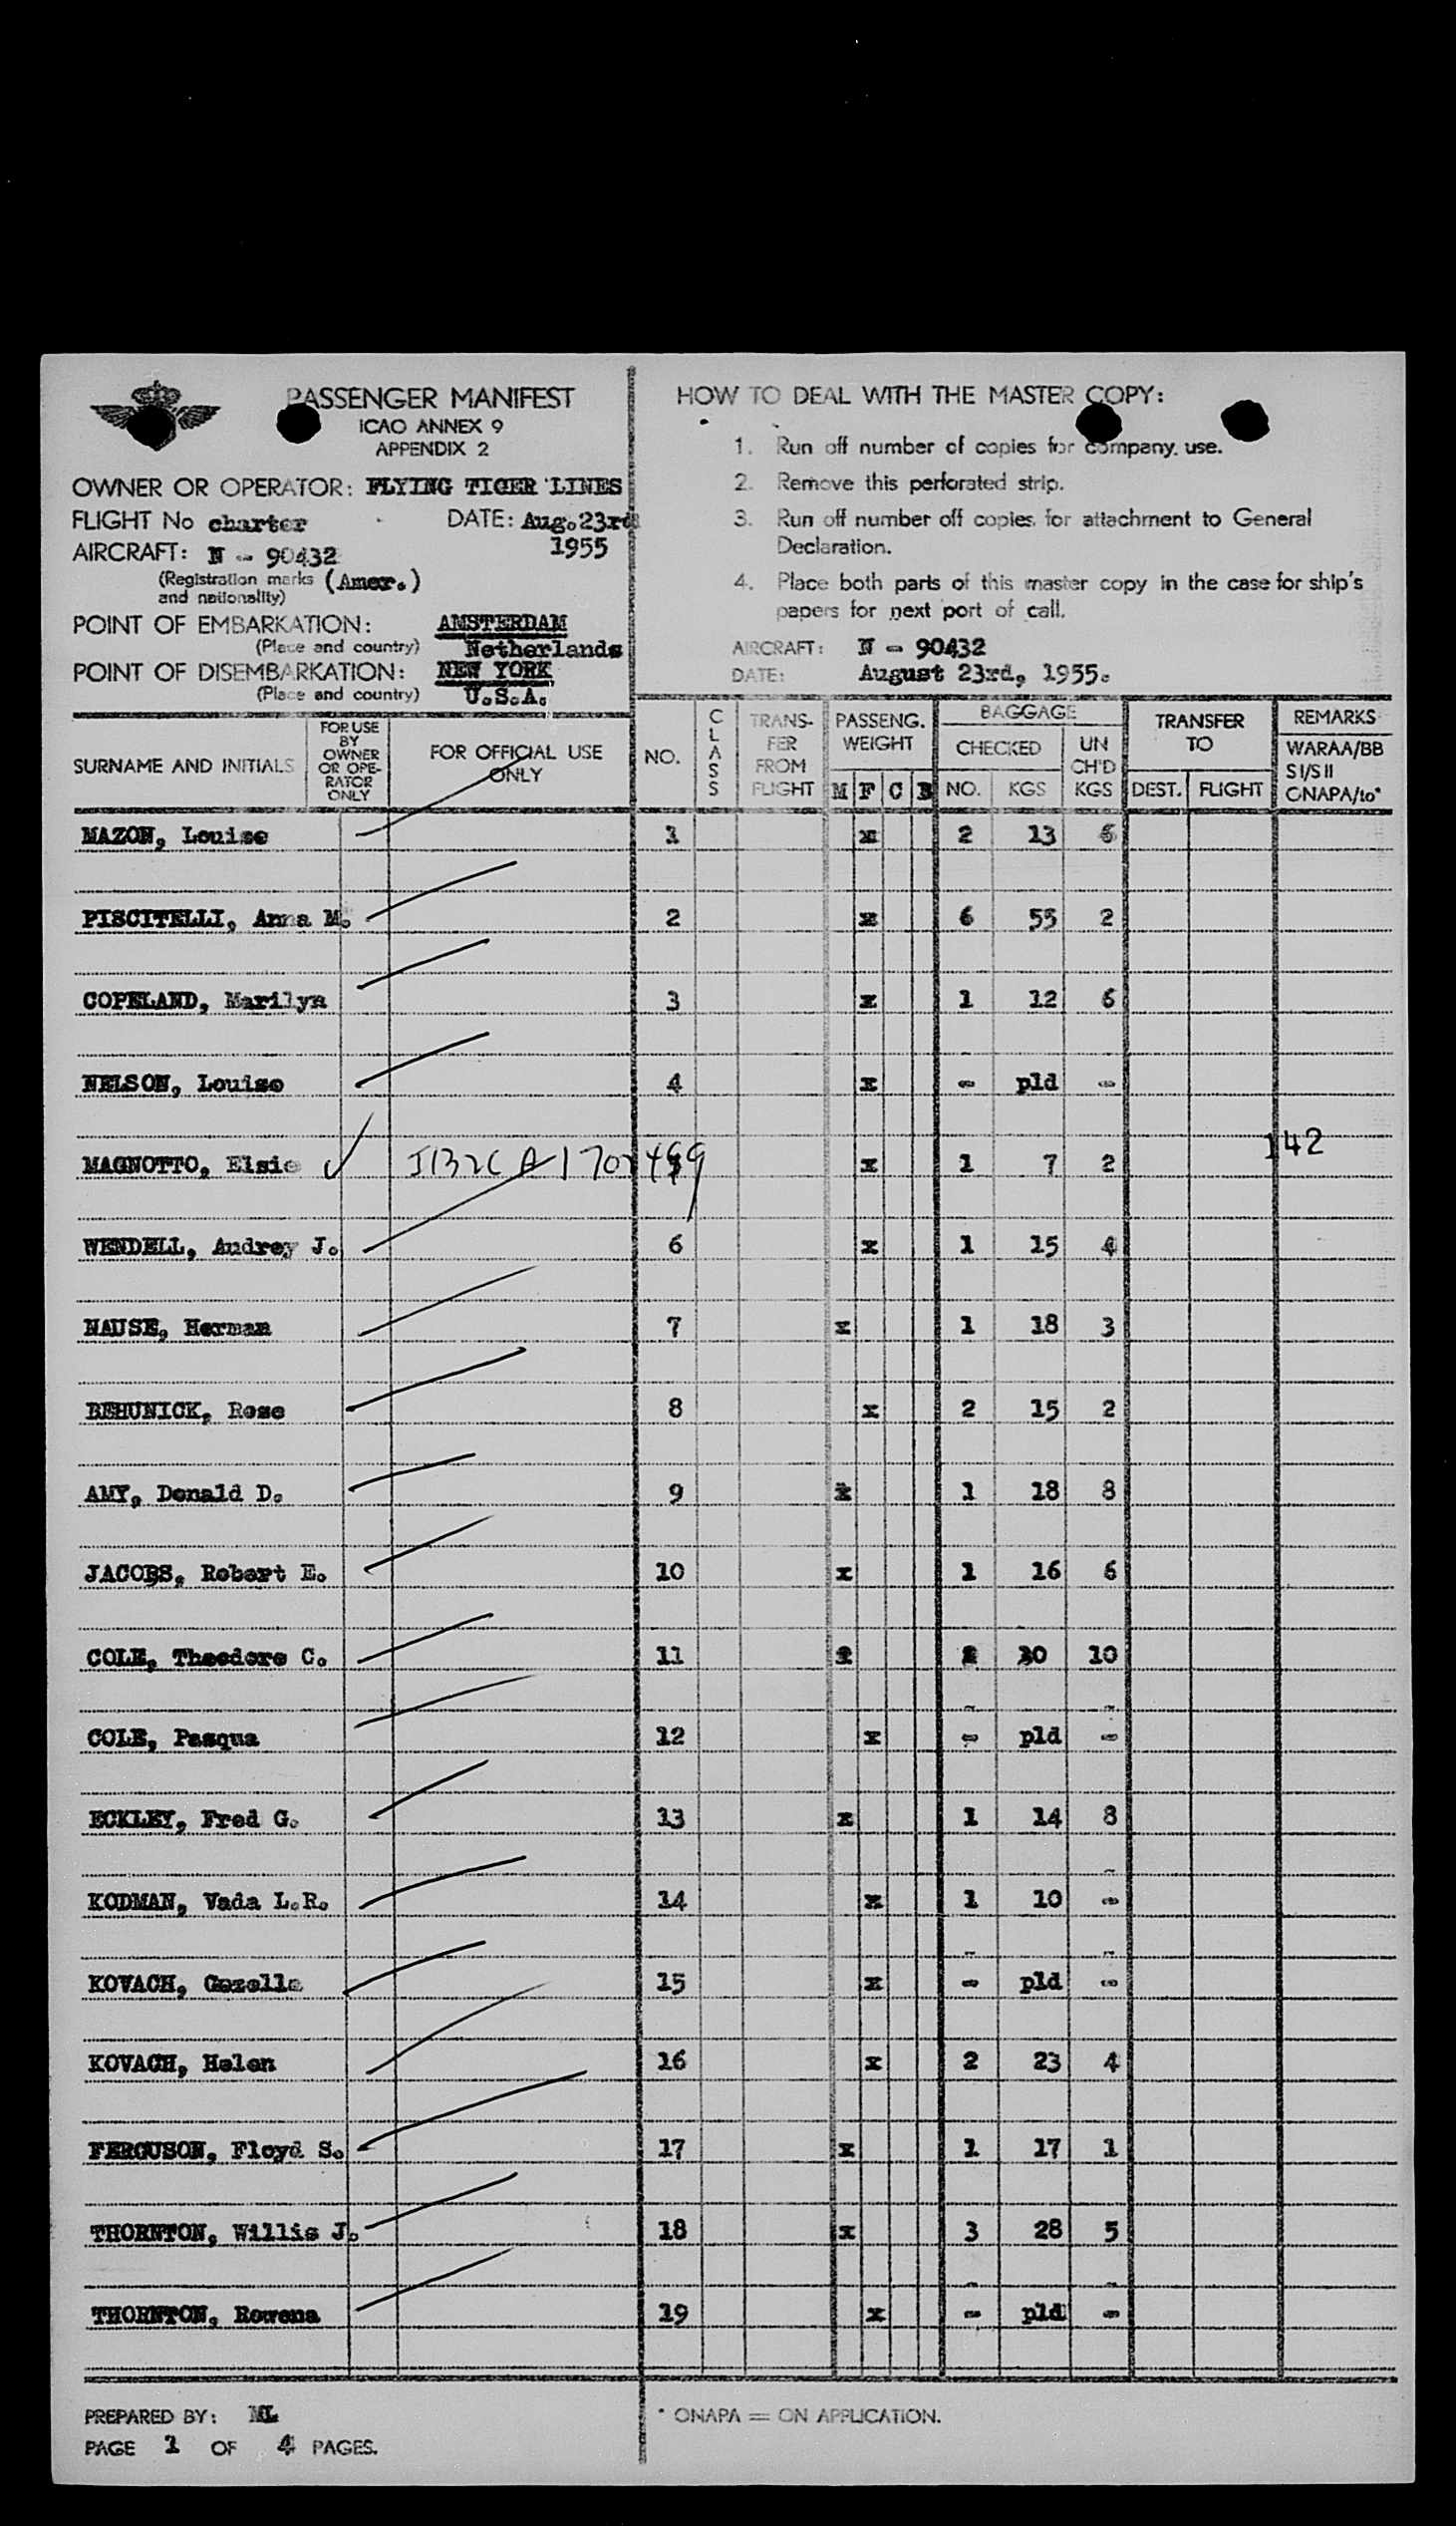 PASSENGER MANIFEST
ICAO ANNEX 9
APPENDIX 2
OWNER OR OPERATOR: FLYING TIGER LINES
FLIGHT No charter DATE: Aug.23rd
1955
AIRCRAFT: N - 90432
(Registration marks (Amer.)
and nationality)
POINT OF EMBARKATION: AMSTERDAM
(Place and country) Netherlands
POINT OF DISEMBARKATION: NEW YORK
(Place and country) U.S.A.
HOW TO DEAL WITH THE MASTER COPY:
1. Run off number of copies for company use.
2. Remove this perforated strip.
3. Run off number off copies for attachment to General
Declaration.
4. Place both parts of this master copy in the case for ship's
papers for next port of call.
AIRCRAFT: N - 90432
DATE: August 23rd, 1955.
SURNAME AND INITIALS
FOR USE
BY
OWNER
OR OPE-
RATOR
ONLY
FOR OFFICIAL USE
ONLY
NO.
CLASS
TRANS-
FER
FROM
FLIGHT
PASSENG.
WEIGHT
M F C B
BAGGAGE
CHECKED
NO. KGS
UN
CH'D
KGS
TRANSFER
TO
DEST. FLIGHT
REMARKS
WARAA/BB
SI/SII
ONAPA/to*
MAZON, Louise 1 x 2 13 6
PISCITELLI, Anna M. 2 x 6 55 2
COPELAND, Marilyn 3 x 1 12 6
NELSON, Louise 4 x - pld -
MAGNOTTO, Elsie x 1 7 2 142
WENDELL, Audrey J. 6 x 1 15 4
NAUSE, Herman 7 x 1 18 3
BEHUNICK, Rose 8 x 2 15 2
AMY, Donald D. 9 x 1 18 8
JACOBS, Robert E. 10 x 1 16 6
COLE, Theodore C. 11 10
COLE, Pasqua 12 x - pld -
ECKLEY, Fred G. 13 x 1 14 8
KODMAN, Vada L.R. 14 x 1 10 -
KOVACH, Gezella 15 x - pld -
KOVACH, Helen 16 x 2 23 4
FERGUSON, Floyd S. 17 x 1 17 1
THORNTON, Willis J. 18 x 3 28 5
THORNTON, Rowena 19 x - pld -
PREPARED BY: ML
PAGE 1 OF 4 PAGES.
* ONAPA = ON APPLICATION.